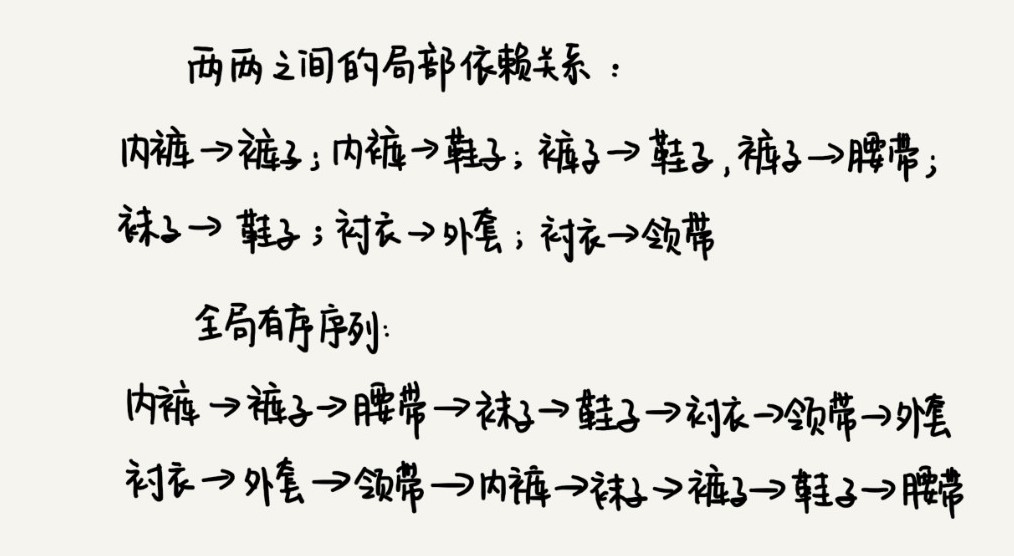 两两之间的局部依赖关系：
内裤→裤子；内裤→鞋子；裤子→鞋子，裤子→腰带；
袜子→鞋子；衬衣→外套；衬衣→领带
全局有序序列：
内裤→裤子→腰带→袜子→鞋子→衬衣→领带→外套
衬衣→外套→领带→内裤→袜子→裤子→鞋子→腰带